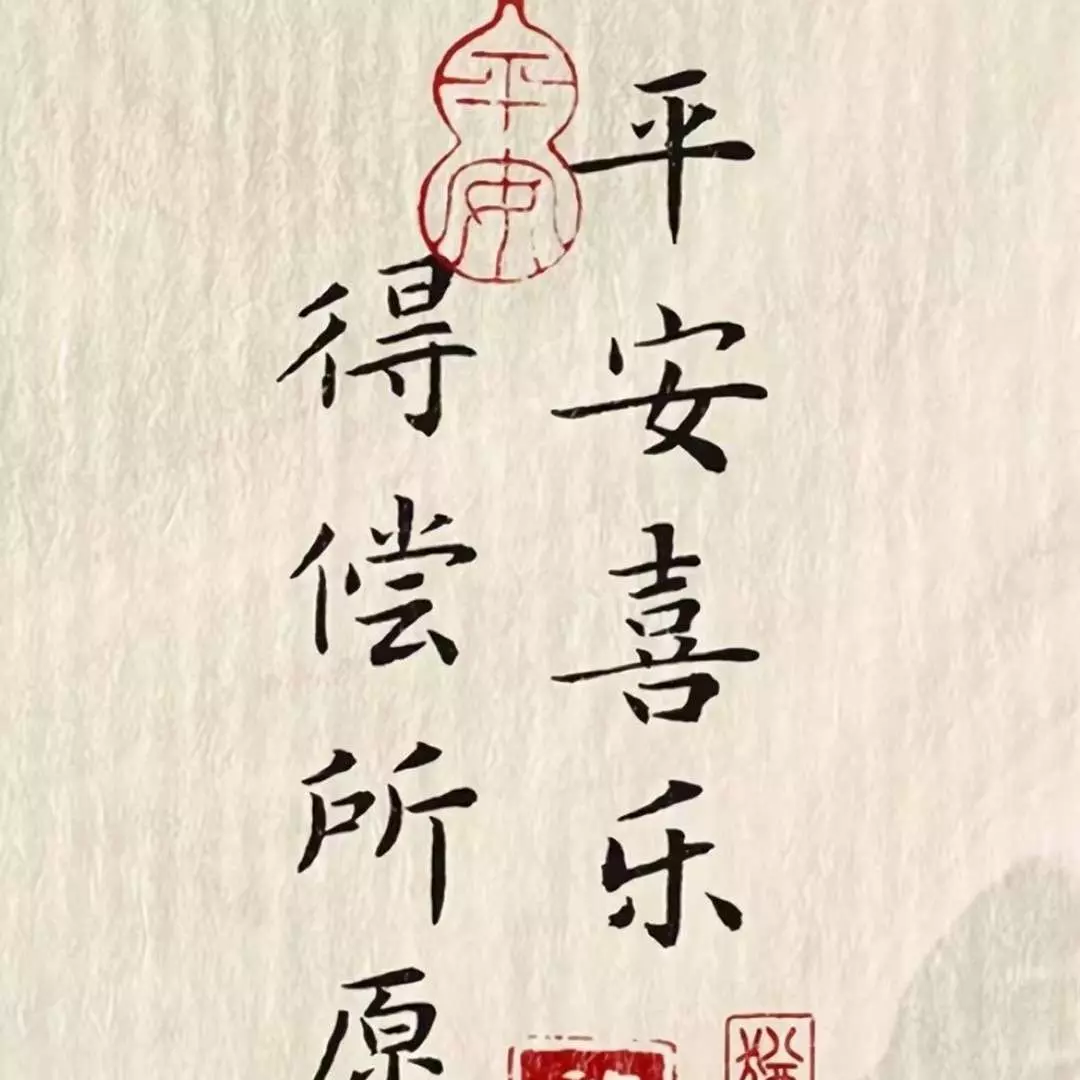 平安喜乐
得偿所原
平安